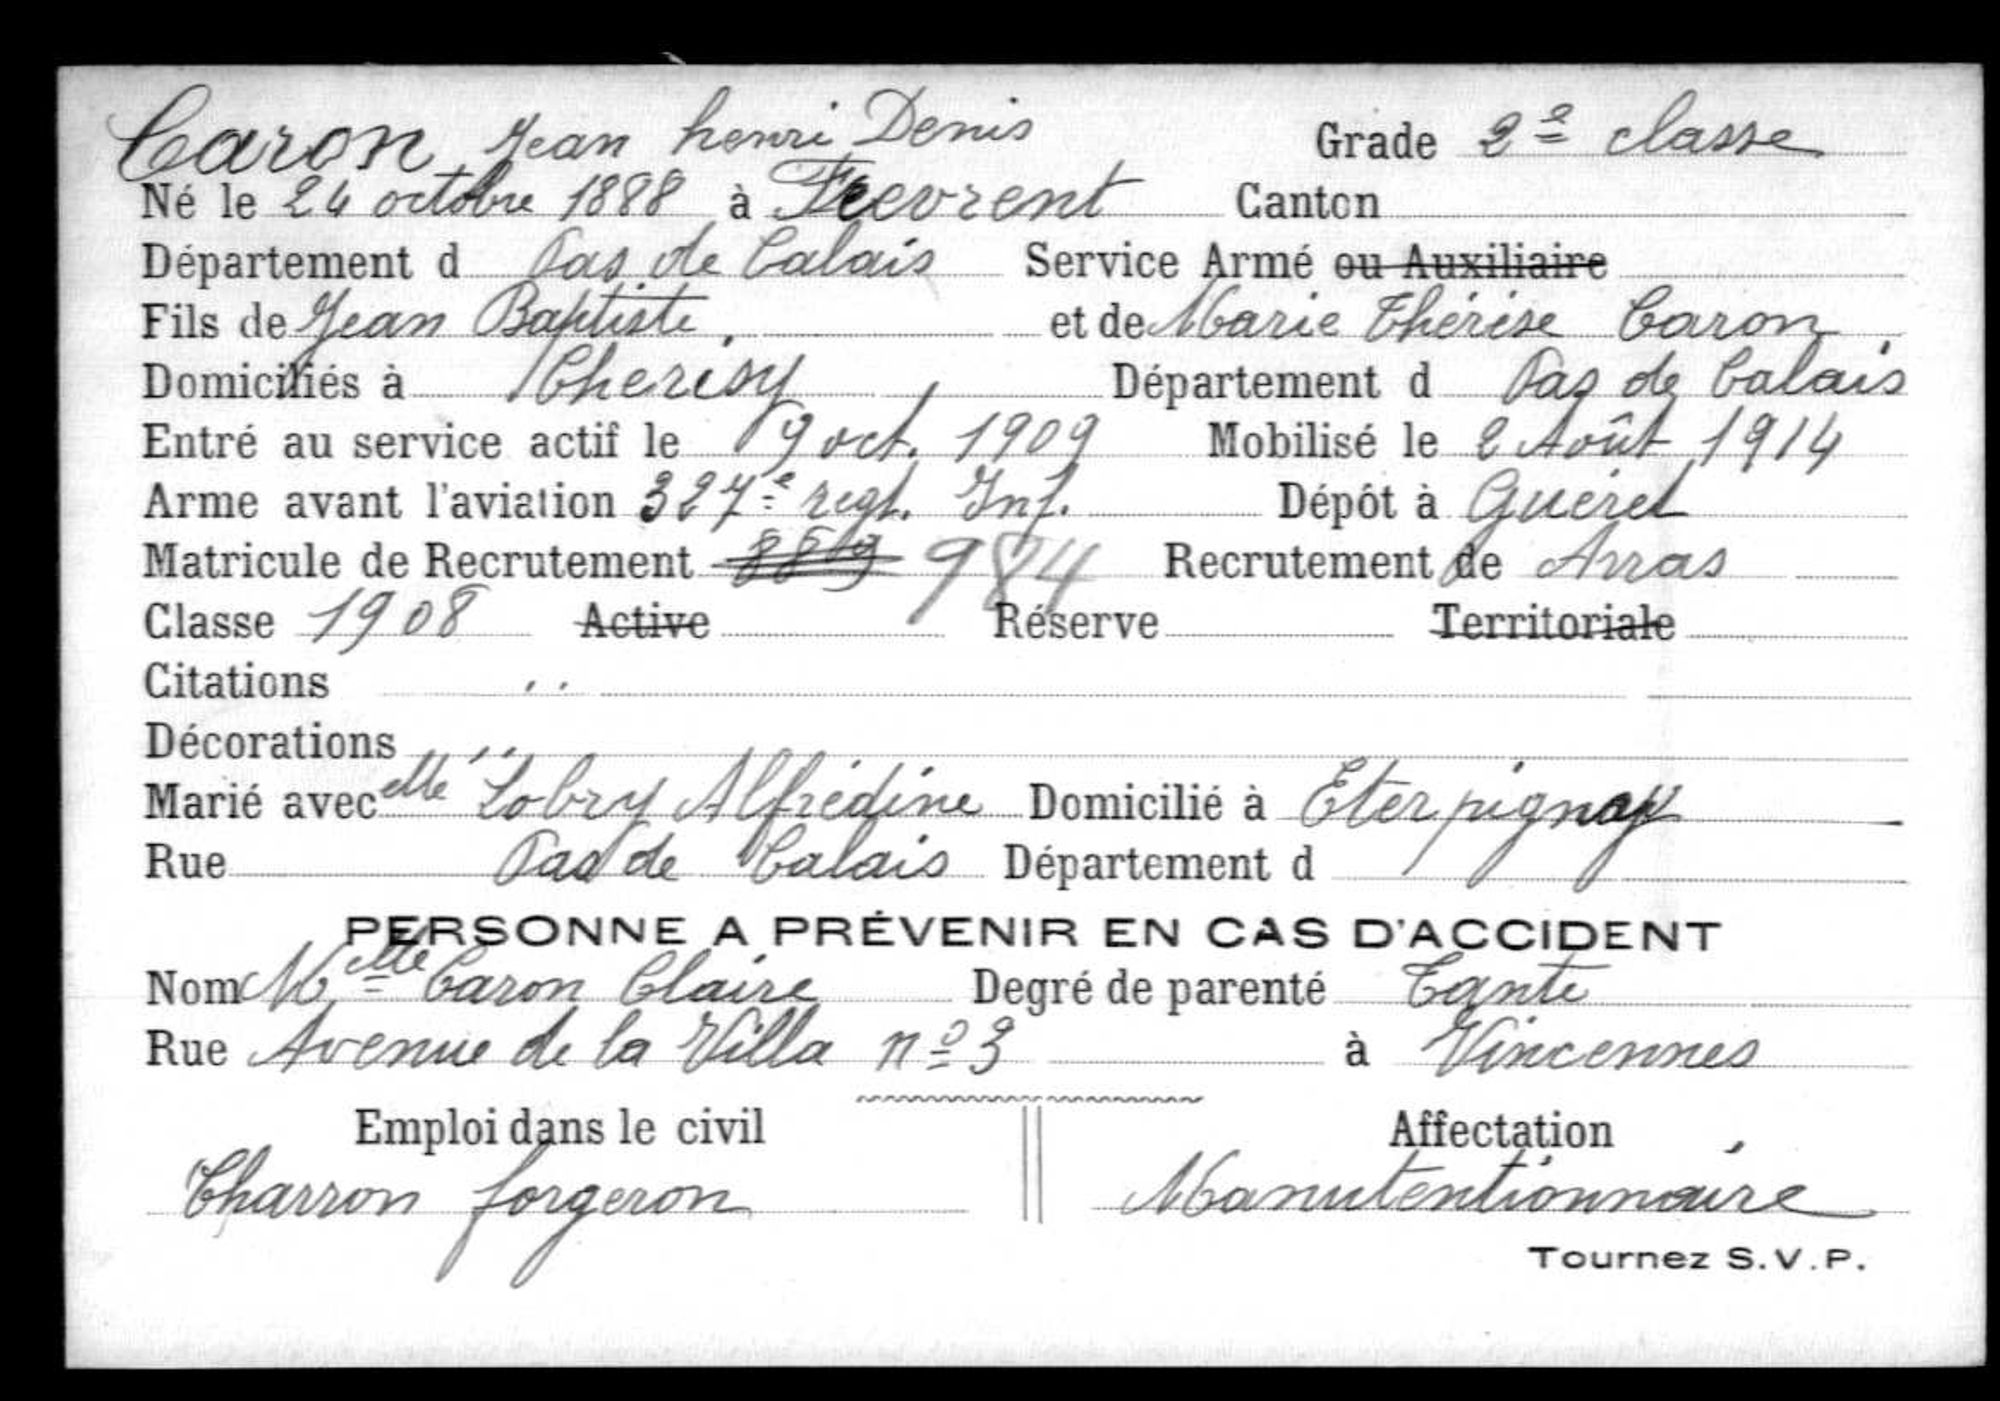 Caron Jean henri Denis Grade 2e classe
Né le 24 octobre 1888 à Frevrent Canton
Département d Pas de Calais Service Armé ou Auxiliaire
Fils de Jean Baptiste, et de Marie Thérèse Caron
Domiciliés à Cherisy Département d Pas de Calais
Entré au service actif le 9 oct. 1909 Mobilisé le 2 Août 1914
Arme avant l'aviation 327e regt. Inf. Dépôt à Guéret
Matricule de Recrutement 984 Recrutement de Arras
Classe 1908 Active Réserve Territoriale
Citations
Décorations
Marié avec elle Lobry Alfrédine Domicilié à Eterpigny
Rue Pas de Calais Département d
PERSONNE A PRÉVENIR EN CAS D'ACCIDENT
Nom Melle Caron Claire Degré de parenté Tante
Rue Avenue de la Villa no 3 à Vincennes
Emploi dans le civil Affectation
Charron forgeron Manutentionnaire
Tournez S.V.P.